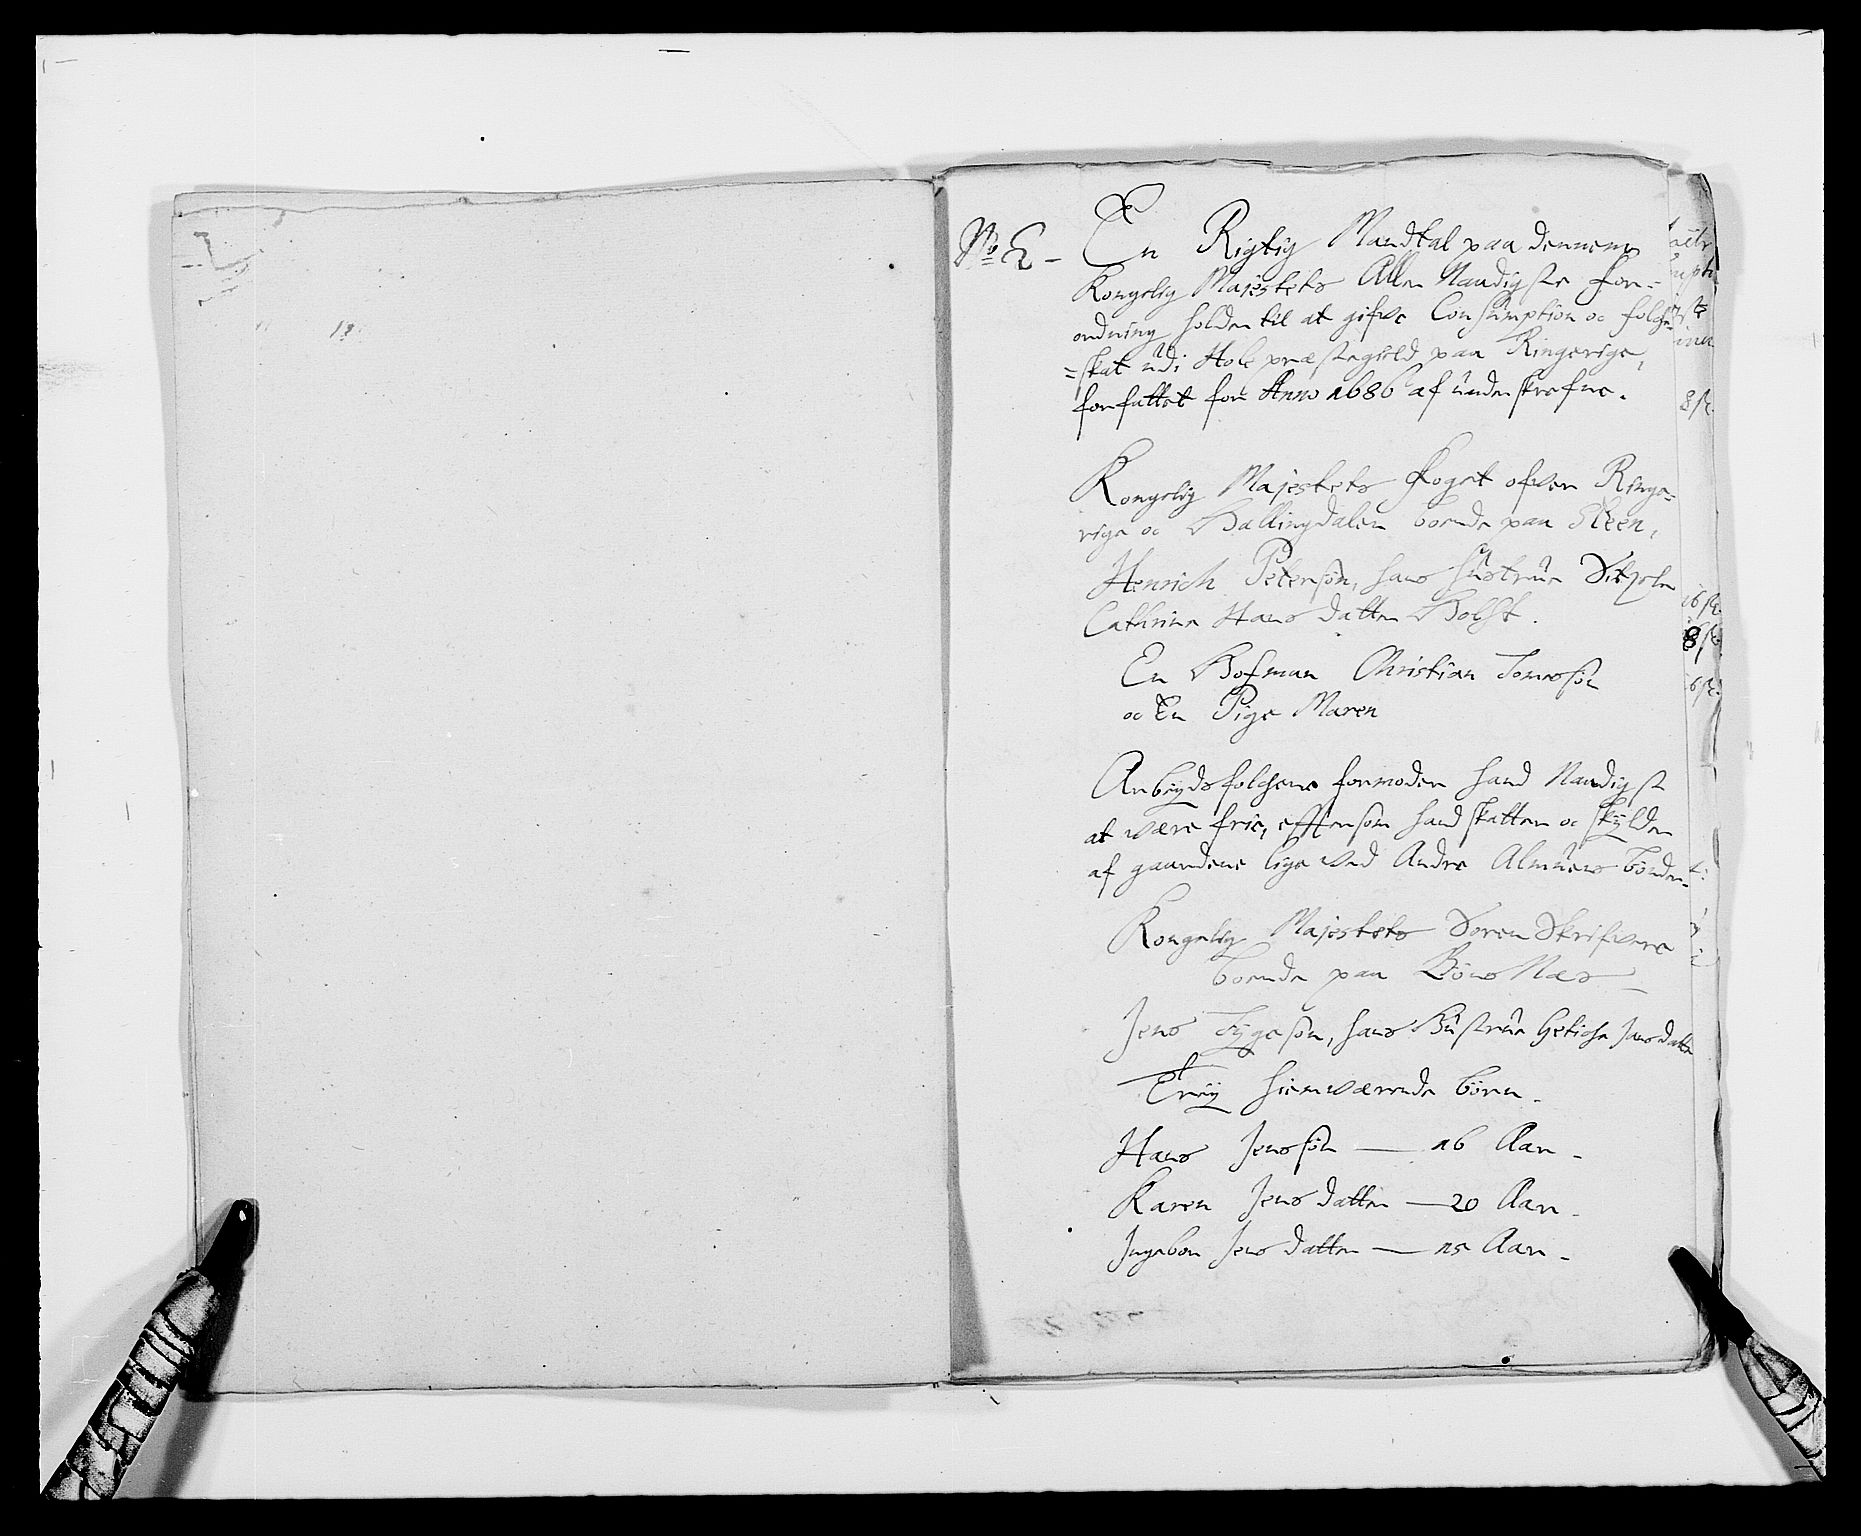 No E - En Rigtig Mandtal paa dennem
Kongelig Majestets Aller Naadigste for-
ordning holder til at gifve Consumption oc folche
=skat udi Hole præstegield paa Ringerige,
forfattet for Anno 1686 af underskrefne.
Kongelig Majestets foget ofver Ringe-
rige oc Hallingdalen boende paa Steen,
Henrich Petersøn, hans hustrue
Cathrine Hans datter Holst.
En Hofman Christian Tomessøn
oc En Pige Maren
Arbeyds folchene formoder hand Naadigst
at være frie, effter som hand skatter oc skylder
af gaardene lige ved Andre Almues bønder-
Kongelig Majestets Soren Skrifvere
boende paa Bønsnæs
Jens Tygesøn, hans Hustrue Jensdatter
Trey hiemværende børn.
Hans Jenssøn — 16 Aar -
Karen Jens datter — 20 Aar -
Ingebor Jens datter — 15 Aar -